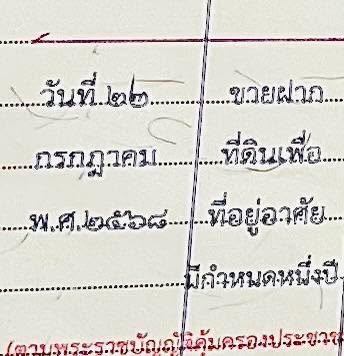 วันที่ ๒๒ ขายฝาก
กรกฎาคม ที่ดินเพื่อ
พ.ศ.๒๕๖๘ ที่อยู่อาศัย
มีกำหนดหนึ่งปี
(ตามพระราชบัญญัติคุ้มครองประชาช